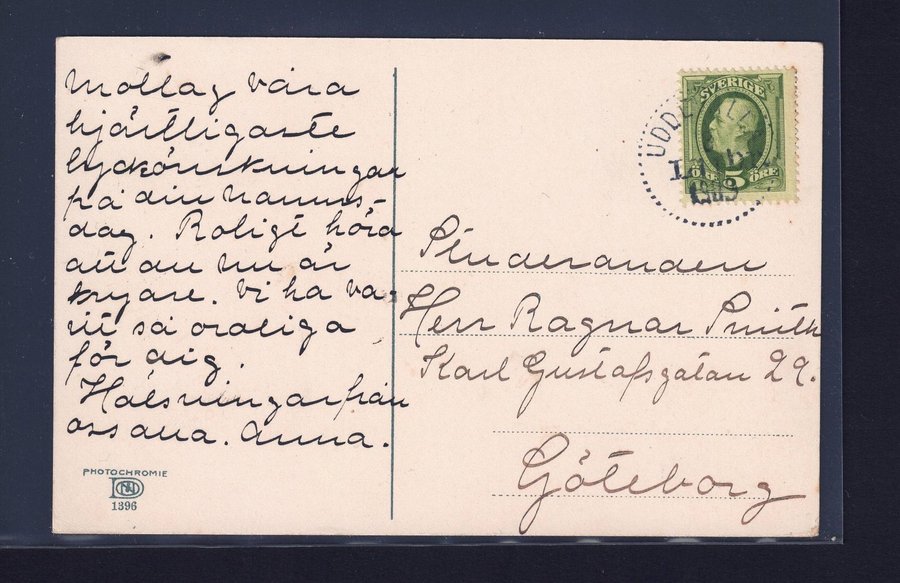 Mottag våra
hjärtligaste
lyckönskningar
på din namns-
dag. Roligt höra
att du nu är
kryare. Vi ha va-
rit så oroliga
för dig.
Hälsningar från
oss alla. Anna.
PHOTOCHROMIE
1396
SVERIGE
ÖRE 5 ÖRE
UDDEVALLA
1909
Studeranden
Herr Ragnar Smith
Karl Gustafsgatan 29.
Göteborg